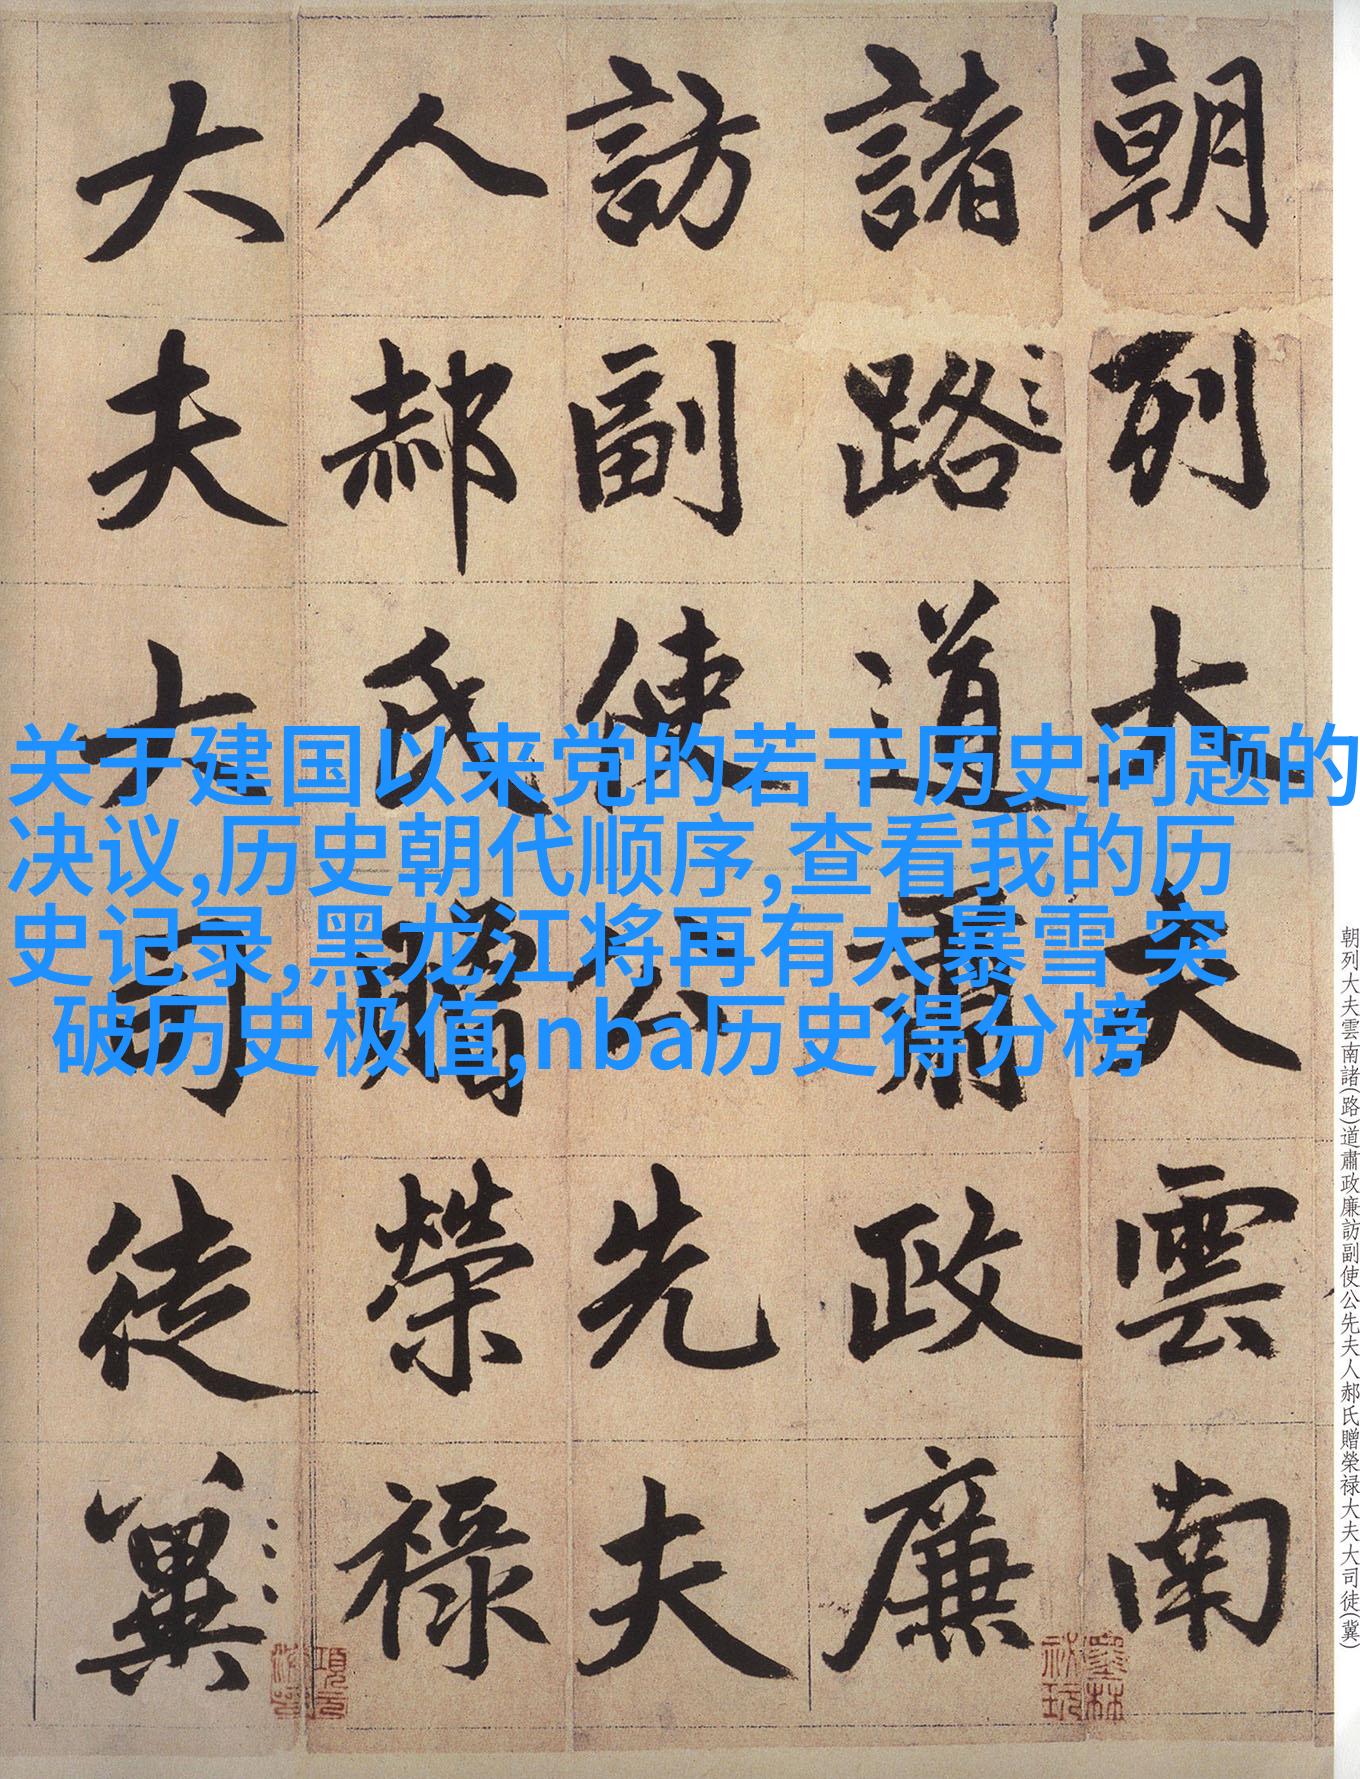 朝列大夫雲南
諸路道肅政廉
訪副使公先夫
人郝氏贈榮祿
大夫大司徒冀
关于建国以来党的若干历史问题的
决议,历史朝代顺序,查看我的历
史记录,黑龙江将再有大暴雪 突
破历史极值,nba历史得分榜
朝列大夫雲南諸(路)道肅政廉訪副使公先夫人郝氏贈榮禄大夫大司徒(冀)